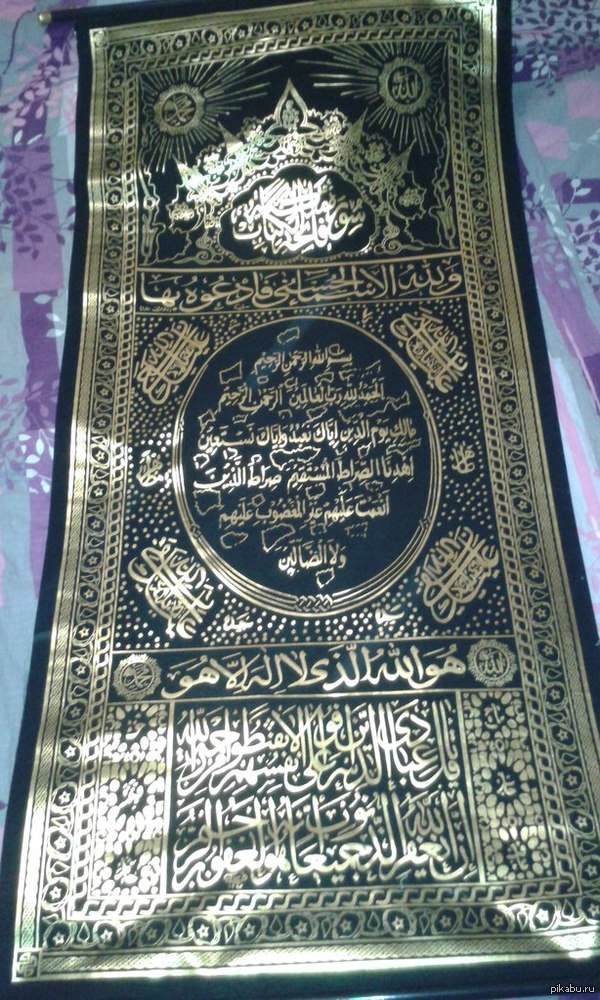 الله
محمد
سورة فاتحة الكتاب
ولله الاسماء الحسنى فادعوه بها
بسم الله الرحمن الرحيم
الحمد لله رب العالمين الرحمن الرحيم
مالك يوم الدين إياك نعبد وإياك نستعين
اهدنا الصراط المستقيم صراط الذين
أنعمت عليهم غير المغضوب عليهم
ولا الضالين
الله
هو الله الذى لا إله إلا هو
محمد
قل يا عبادى الذين أسرفوا على أنفسهم لا تقنطوا من رحمة الله
إن الله يغفر الذنوب جميعا إنه هو الغفور الرحيم
pikabu.ru